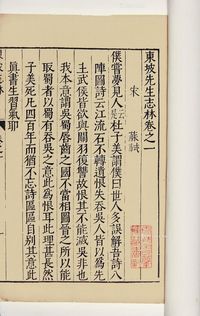 東坡先生志林卷之一
宋 蘇軾
僕嘗夢見人云是杜子美謂僕曰世人多誤解吾詩八
陣圖詩云江流石不轉遺恨失吞吳人皆以為先
主武侯皆欲與關羽復讐故恨其不能滅吳非也
我本意謂吳蜀唇齒之國不當相圖晉之所以能
取蜀者以蜀有吞吳之意此為恨耳此理甚長然
子美死凡四百年而猶不忘詩區區自别其意此
眞書生習氣耶